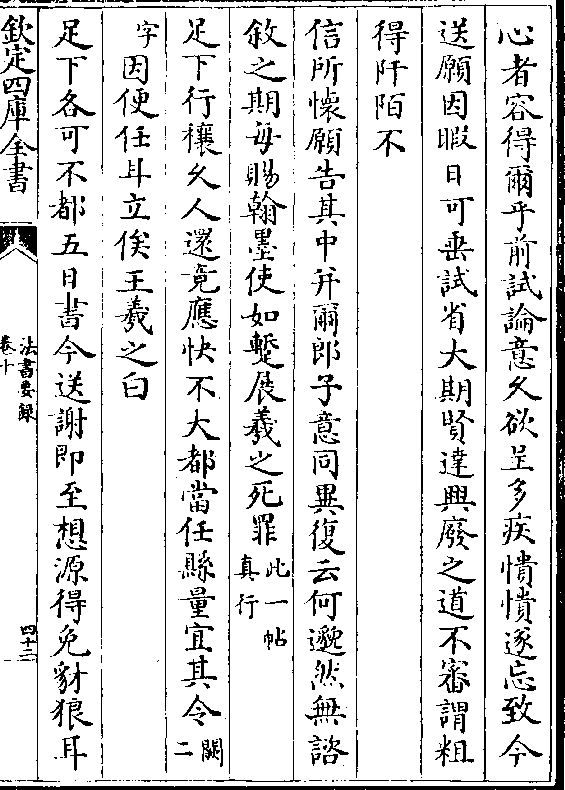 心者容得爾乎前試論意久欲呈多疾憒憒遂忘致今
送願因暇日可垂試省大期賢達興廢之道不審謂粗
得阡陌不
信所懷願告其中并爾郎子意同異復云何邈然無諮
敘之期每賜翰墨使如蹔展羲之死罪此一帖
真行
足下行穰久人還竟應快不大都當任縣量宜其令闕
二
字因便任耳立俟王羲之白
足下各可不都五日書今送謝即至想源得免豺狼耳
欽定四庫全書
法書要録
卷十
四十三